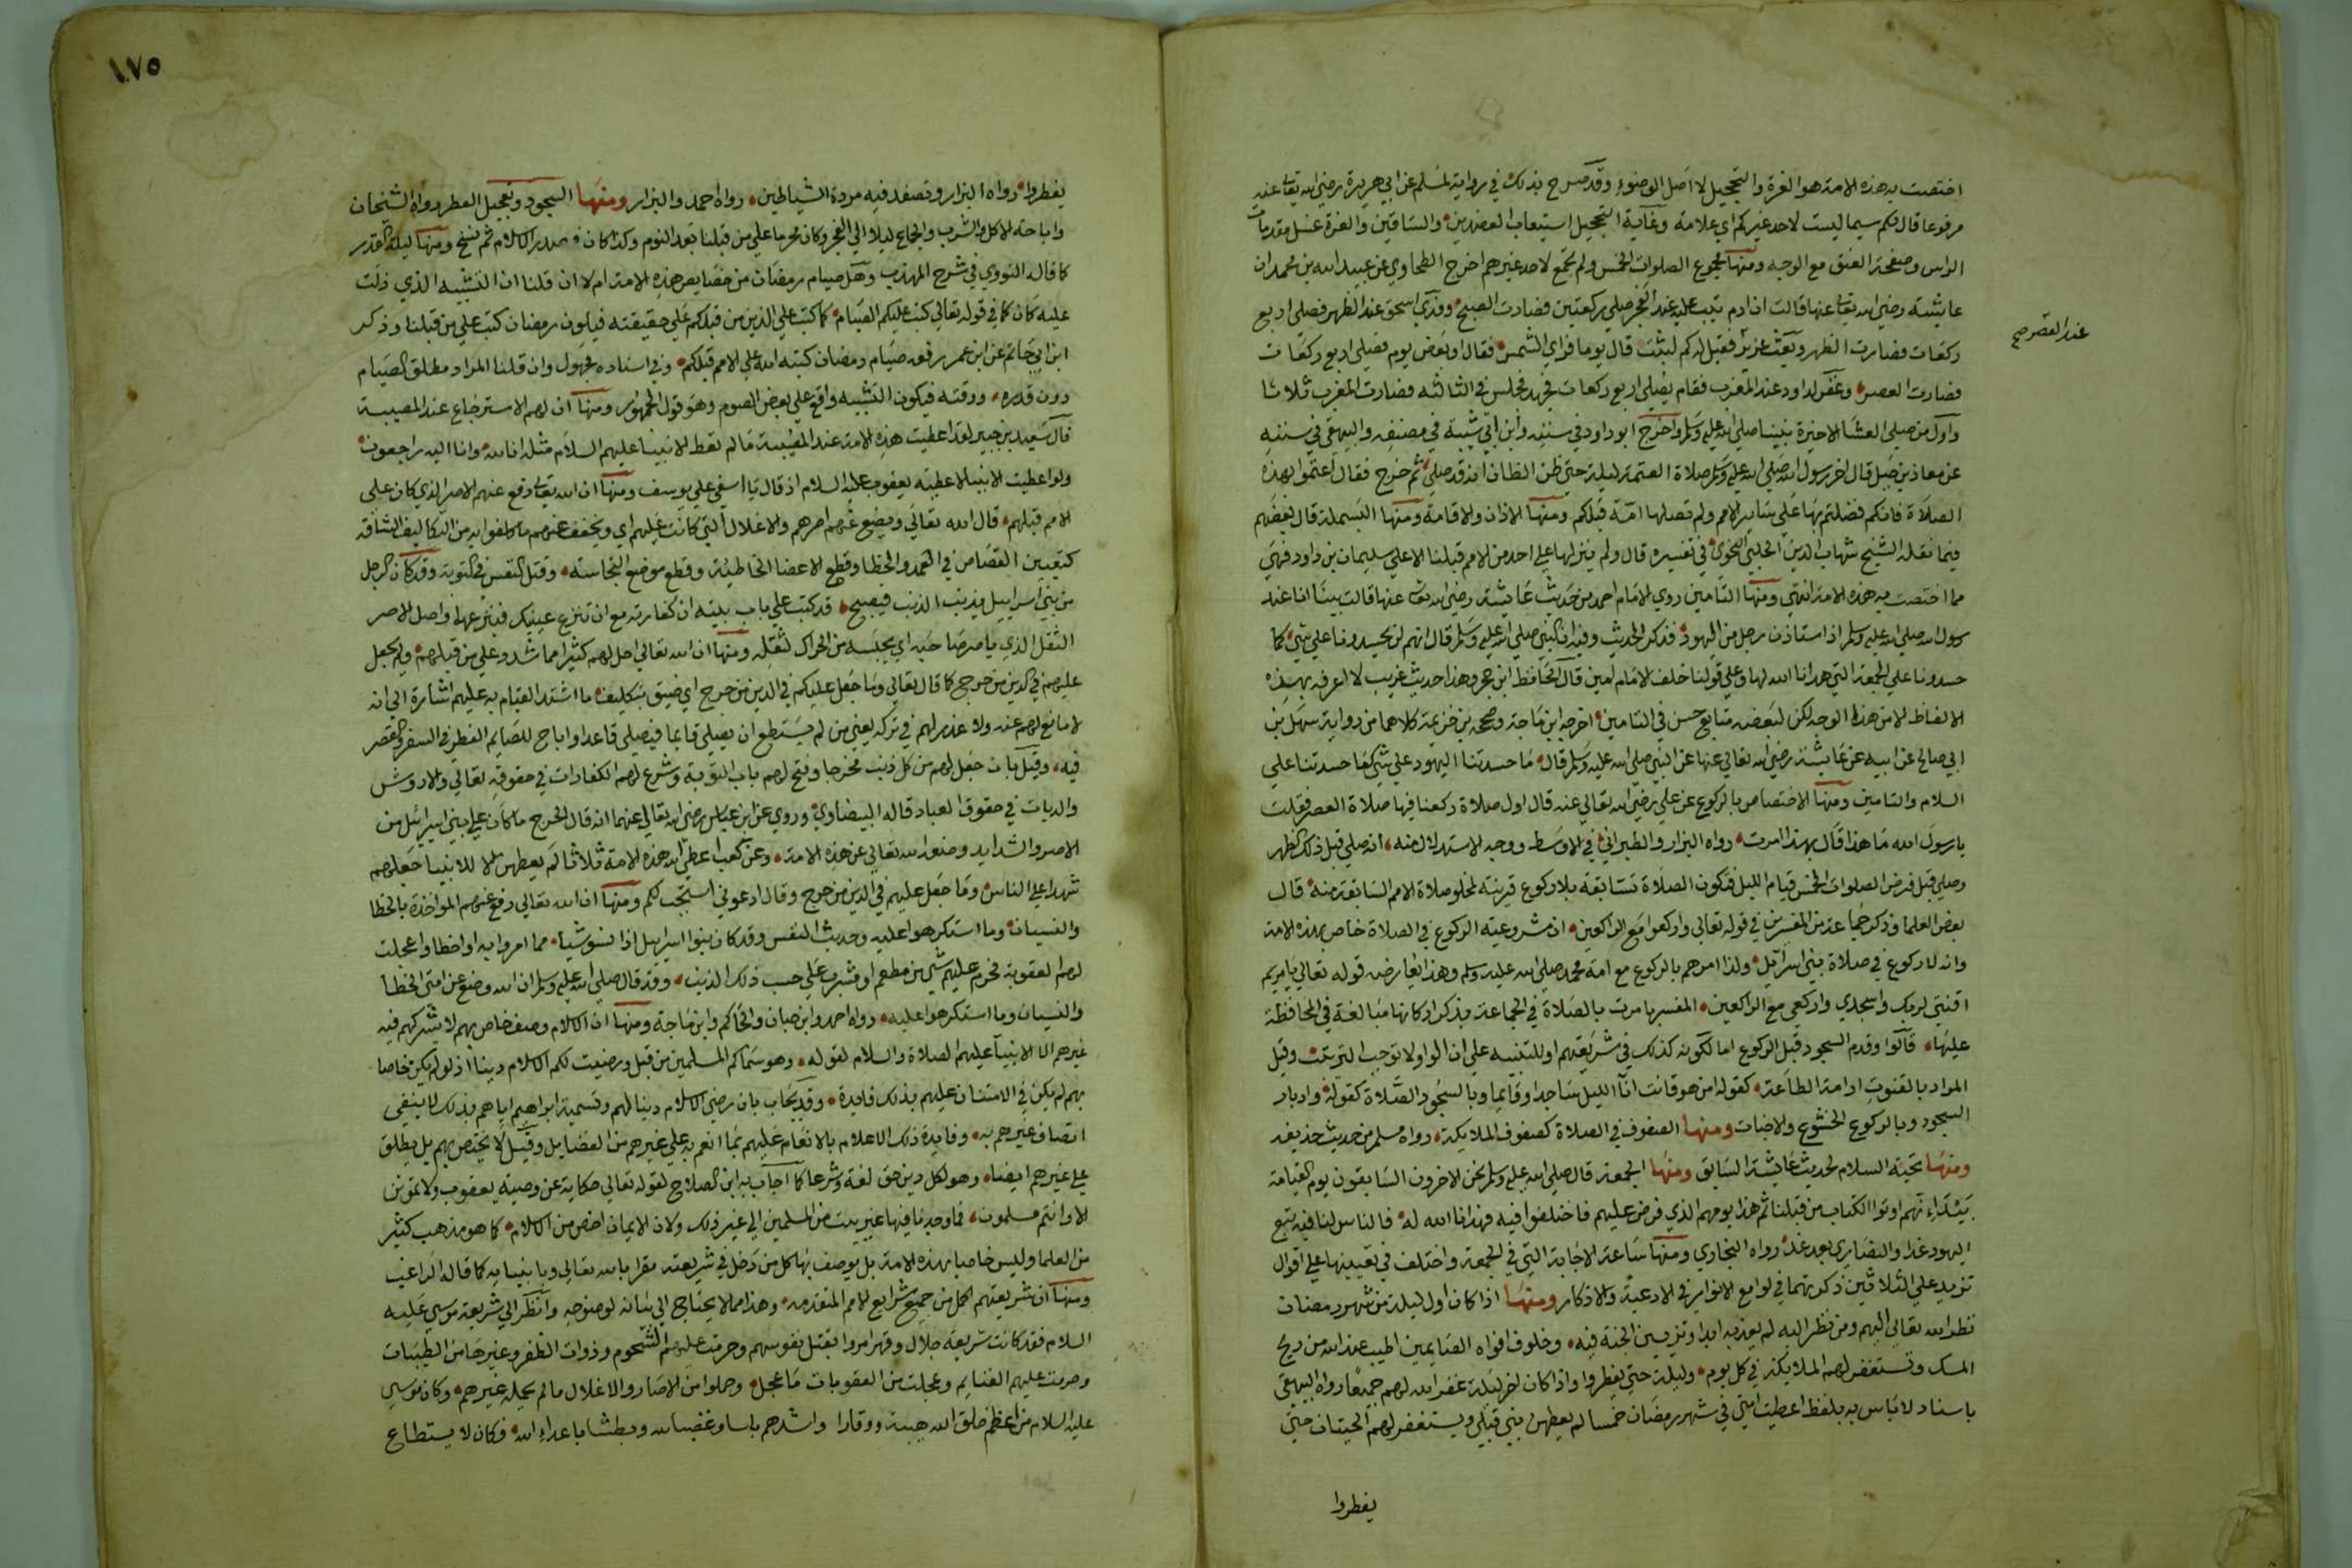 اختصت به هذه الامة هو الغرة والتحجيل لا اصل الوضوء وقد صرح بذلك في رواية لمسلم عن ابي هريرة رضي الله تعالى عنه
مرفوعا قال لكم سيما ليست لاحد غيركم اي علامة وغاية التحجيل استيعاب العضدين والساقين والغرة غسل مقدمات
الراس وصفحة العنق مع الوجه ومنها مجموع الصلوات الخمس ولم تجمع لاحد غيرهم اخرج الطحاوي عن عبيد الله بن محمد ان
عايشة رضي الله تعالى عنها قالت ان ادم تيب عليه عند الفجر صلي ركعتين فصارت الصبح وفدي اسحق عند الظهر فصلى اربع
عند العصر صح
ركعات فصارت الظهر وبعث عزير فقيل له كم لبثت قال يوما فراي الشمس فقال او بعض يوم فصلى اربع ركعات
فصارت العصر وغفر لداود عند المغرب فقام يصلي اربع ركعات فجهد فجلس في الثالثة فصارت المغرب ثلاثا
واول من صلى العشا الاخيرة نبينا صلى الله عليه وسلم واخرج ابو داود في سننه وابن ابي شيبة في مصنفه والبيهقي في سننه
عن معاذ بن جبل قال اخر رسول الله صلى الله عليه وسلم صلاة العتمة ليلة حتى ظن الظان انه قد صلى ثم خرج فقال اعتموا بهذه
الصلاة فانكم فضلتم بها على ساير الامم ولم تصلها امة قبلكم ومنها الاذان والاقامة ومنها البسملة قال بعضهم
فيما نقله الشيخ شهاب الدين الحلبي النحوي في تفسيره قال ولم ينزلها على احد من الامم قبلنا الا على سليمان بن داود فهي
مما اختصت به هذه الامة انتهى ومنها التامين روي الامام احمد من حديث عايشة رضي الله تعالى عنها قالت بينا انا عند
رسول الله صلى الله عليه وسلم اذ استاذن رجل من اليهود فذكر الحديث وفيه ان النبي صلى الله عليه وسلم قال انهم لم يحسدونا على شي كما
حسدونا على الجمعة التي هدانا الله لها وعلى قولنا خلف الامام امين قال الحافظ ابن حجر وهذا حديث غريب لا اعرفه بهذه
الالفاظ الا من هذا الوجه لكن لبعضه متابع حسن في التامين اخرجه ابن ماجة وصححه بن خزيمة كلاهما من رواية سهل بن
ابي صالح عن ابيه عن عايشة رضي الله تعالى عنها عن النبي صلى الله عليه وسلم قال ما حسدتنا اليهود على شي كما حسدتنا على
السلام والتامين ومنها الاختصاص بالركوع عن علي رضي الله تعالى عنه قال اول صلاة ركعنا فيها صلاة العصر فقلت
يا رسول الله ما هذا قال بهذا امرت رواه البزار والطبراني في الاوسط ووجه الاستدلال منه انه صلى قبل ذلك الظهر
وصلى قبل فرض الصلوات الخمس قيام الليل فتكون الصلاة سابقة بلا ركوع قرينة لخلو صلاة الامم السابقة منه قال
بعض العلما وذكر جماعة من المفسرين في قوله تعالى واركعوا مع الراكعين ان مشروعية الركوع في الصلاة خاص بهذه الامة
وانه لا ركوع في صلاة بني اسرايل ولذا امرهم بالركوع مع امة محمد صلى الله عليه وسلم وهذا يعارضه قوله تعالى يا مريم
اقنتي لربك واسجدي واركعي مع الراكعين المفسر بامرت بالصلاة في الجماعة وبذكر اركانها مبالغة في المحافظة
عليها قالوا وقدم السجود قبل الركوع اما لكونه كذلك في شريعتهم او للتنبيه على ان الواو لا توجب الترتيب وقيل
المراد بالقنوت ادامة الطاعة كقوله امن هو قانت انا الليل ساجدا وقايما وبالسجود الصلاة كقوله وادبار
السجود وبالركوع الخشوع والاخبات ومنها الصفوف في الصلاة كصفوف الملايكة رواه مسلم من حديث حذيفة
ومنها تحية السلام لحديث عايشة السابق ومنها الجمعة قال صلى الله عليه وسلم نحن الاخرون السابقون يوم القيامة
بيد انهم اوتوا الكتاب من قبلنا ثم هذا يومهم الذي فرض عليهم فاختلفوا فيه فهدانا الله له فالناس لنا فيه تبع
اليهود غدا والنصارى بعد غد رواه البخاري ومنها ساعة الاجابة التي في الجمعة واختلف في تعيينها على اقوال
تزيد على الثلاثين ذكرتها في لوامع الانوار في الادعية والاذكار ومنها اذا كان اول ليلة من شهر رمضان
نظر الله تعالى اليهم ومن نظر اليه لم يعذبه ابدا وتزيين الجنة فيه وخلوف افواه الصايمين اطيب عند الله من ريح
المسك وتستغفر لهم الملايكة في كل يوم وليلة حتى يفطروا واذا كان اخر ليلة غفر الله لهم جميعا رواه البيهقي
باسناد لا باس به بلفظ اعطيت امتي في شهر رمضان خمسا لم يعطهن نبي قبلي ويستغفر لهم الحيتان حتى
يفطروا
١٧٥
يفطروا رواه البزار وتصفد فيه مردة الشياطين رواه احمد والبزار ومنها السحور وتعجيل الفطر رواه الشيخان
واباحة الاكل والشرب والجماع ليلا الى الفجر وكان محرما على من قبلنا بعد النوم وكذا كان في صدر الاسلام ثم نسخ ومنها ليلة القدر
كما قاله النووي في شرح المهذب وهل صيام رمضان من خصايص هذه الامة ام لا ان قلنا ان التشبيه الذي دلت
عليه كان كما في قوله تعالى كتب عليكم الصيام كما كتب على الذين من قبلكم على حقيقته فيكون رمضان كتب على من قبلنا وذكر
ابن ابي حاتم عن ابن عمر رفعه صيام رمضان كتبه الله على الامم قبلكم وفي اسناده مجهول وان قلنا المراد مطلق الصيام
دون قدره ووقته فيكون التشبيه واقع على بعض الصوم وهو قول الجمهور ومنها ان لهم الاسترجاع عند المصيبة
قال سعيد بن جبير لقد اعطيت هذه الامة عند المصيبة ما لم تعط الانبيا عليهم السلام مثله انا لله وانا اليه راجعون
ولو اعطيت الانبيا لاعطيه يعقوب عليه السلام اذ قال يا اسفي على يوسف ومنها ان الله تعالى رفع عنهم الاصر الذي كان على
الامم قبلهم قال الله تعالى ويضع عنهم اصرهم والاغلال التي كانت عليهم اي ويخفف عنهم ما كلفوا به من التكاليف الشاقه
كتعيين القصاص في العمد والخطا وقطع الاعضا الخاطية وقطع موضع النجاسته وقتل النفس في التوبة وقد كان الرجل
من بني اسراييل يذنب الذنب فيصبح قد كتب على باب بيته ان كفارته مع ان تنزع عينيك فينزعهما واصل الاصر
الثقل الذي ياصر صاحبه اي يحبسه من الحراك لثقله ومنها ان الله تعالى احل لهم كثيرا مما شدد على من قبلهم ولم يجعل
عليهم في الدين من حرج كما قال تعالى وما جعل عليكم في الدين من حرج اي ضيق بتكليف ما اشتد القيام به عليهم اشارة الى انه
لا مانع لهم عنه ولا عذر لهم في تركه يعني من لم يستطع ان يصلي قايما فيصلي قاعدا واباح للصايم الفطر في السفر والقصر
فيه وقيل بان جعل لهم من كل ذنب مخرجا وفتح لهم باب التوبة وشرع لهم الكفارات في حقوقه تعالى والاروش
والديات في حقوق العباد قاله البيضاوي وروي عن ابن عباس رضي الله تعالى عنهما انه قال الحرج ما كان على بني اسرائيل من
الاصر والشدايد وضعه الله تعالى عن هذه الامة وعن كعب اعطى الله هذه الامة ثلاثا لم يعطهن الا للانبيا جعلهم
شهدا على الناس وما جعل عليهم في الدين من حرج وقال ادعوني استجب لكم ومنها ان الله تعالى رفع عنهم المواخذة بالخطا
والنسيان وما استكرهوا عليه وحديث النفس وقد كان بنوا اسراييل اذا نسوا شيا مما امروا به او اخطاوا عجلت
لهم العقوبة فحرم عليهم شي من مطعم او مشرب على حسب ذلك الذنب وقد قال صلى الله عليه وسلم ان الله وضع عن امتي الخطا
والنسيان وما استكرهوا عليه رواه احمد وابن حبان والحاكم وابن ماجة ومنها ان الاسلام وصف خاص بهم لا يشركهم فيه
غيرهم الا الانبيا عليهم الصلاة والسلام لقوله وهو سماكم المسلمين من قبل ورضيت لكم الاسلام دينا اذ لو لم يكن خاصا
بهم لم يكن في الامتنان عليهم بذلك فايدة وقد يجاب بان رضي الاسلام دينا لهم وتسمية ابراهيم اياهم بذلك لا ينفي
اتصاف غيرهم به وفايدة ذلك الاعلام بالانعام عليهم بما انعم به على غيرهم من الفضايل وقيل لا يختص بهم بل يطلق
على غيرهم ايضا وهو لكل دين حق لغة وشرعا كما اجاب به ابن الصلاح لقوله تعالى حكاية عن وصية يعقوب ولا تموتن
الا وانتم مسلمون فما وجدنا فيها غير بيت من المسلمين الى غير ذلك ولان الايمان اخص من الاسلام كما هو مذهب كثير
من العلما وليس خاصا بهذه الامة بل يوصف بها كل من دخل في شريعته مقرا بالله تعالى وبانبيايه كما قاله الراغب
ومنها ان شريعتهم اكمل من جميع شرايع الامم المتقدمه وهذا مما لا يحتاج الى بيانه لوضوحه وانظر الى شريعة موسى عليه
السلام فقد كانت شريعة جلال وقهر امروا بقتل نفوسهم وحرمت عليهم الشحوم وذوات الظفر وغيرها من الطيبات
وحرمت عليهم الغنايم وعجلت من العقوبات ما عجل وحملوا من الاصار والاغلال ما لم يحمله غيرهم وكان موسى
عليه السلام من اعظم خلق الله هيبة ووقارا واشدهم باسا وغضبا لله وبطشا باعداء الله فكان لا يستطاع